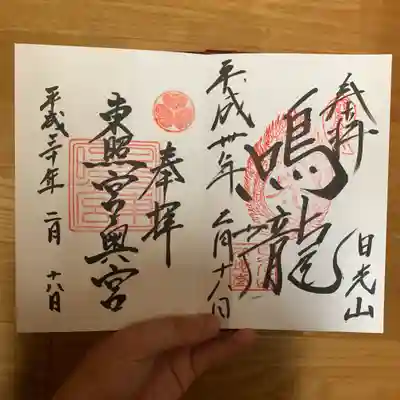 奉拝
日光山
鳴龍
平成卅年二月十八日
奉拝
東照宮奥宮
平成三十年 二月 十八日